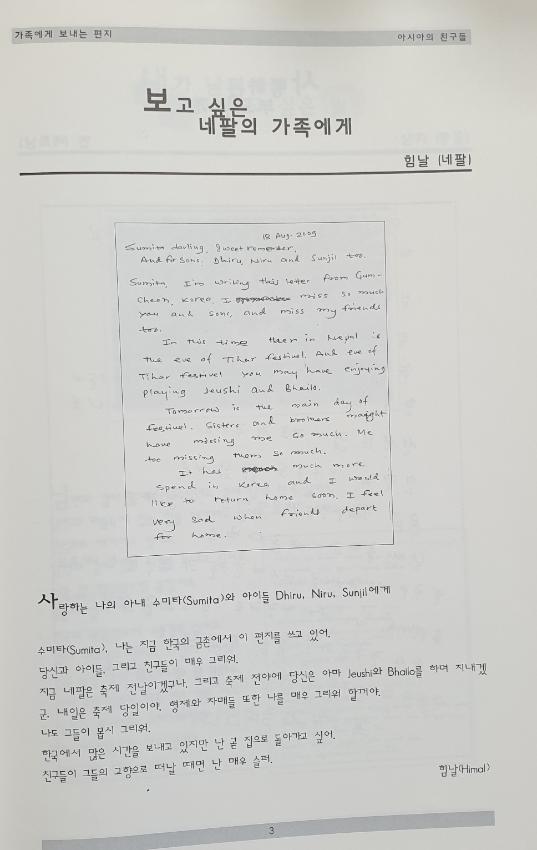 가족에게 보내는 편지
아시아의 친구들
보고 싶은
네팔의 가족에게
힘날 (네팔)
18 Aug. 2005
Sumita darling, Sweet remember,
And for Sons. Dhiru, Niru and Sunjil too.
Sumita, I'm writing this letter from Gum-
Cheon, Korea. I miss so much
you and sons, and miss my friends
too.
In this time there in Nepal is
the eve of Tihar festival. And eve of
Tihar festival you may have enjoying
playing Jeushi and Bhailo.
Tomorrow is the main day of
festival. Sisters and brothers
have missing me so much. Me
too missing them so much.
It has much more
spend in Korea and I would
like to return home soon. I feel
very sad when friends depart
for home.
사랑하는 나의 아내 수미타(Sumita)와 아이들 Dhiru, Niru, Sunjil에게
수미타(Sumita), 나는 지금 한국의 금촌에서 이 편지를 쓰고 있어.
당신과 아이들, 그리고 친구들이 매우 그리워.
지금 네팔은 축제 전날이겠구나. 그리고 축제 전야에 당신은 아마 Jeushi와 Bhailo를 하며 지내겠
군. 내일은 축제 당일이야. 형제와 자매들 또한 나를 매우 그리워 할꺼야.
나도 그들이 몹시 그리워.
한국에서 많은 시간을 보내고 있지만 난 곧 집으로 돌아가고 싶어.
친구들이 그들의 고향으로 떠날 때면 난 매우 슬퍼.
힘날(Himal)
3